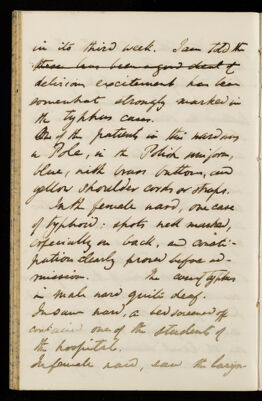 in its third week. I am told the
there has been a good deal of
delirium excitement has been
somewhat strongly marked in
the typhus cases.
One of the patients in this ward was
a Pole, in the Polish uniform,
blue, with brass buttons, and
yellow shoulder cords or straps.
In the female ward, one case
of typhoid: spots well marked,
especially on back, and consti-
pation clearly proved before ad-
mission. The case typhus
in male ward quite deaf.
In same ward, a bed screened off
contained one of the students of
the hospital.
In female ward, saw the